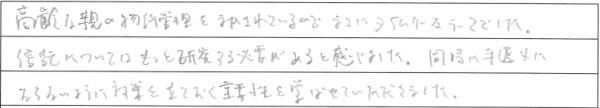 高齢な親の物件管理をまかされているので まさにタイムリーなテーマでした。
信託についてはもっと研究する必要があると感じました。同時に手遅れに
ならないように対策を立てておく重要性を学ばせていただきました。